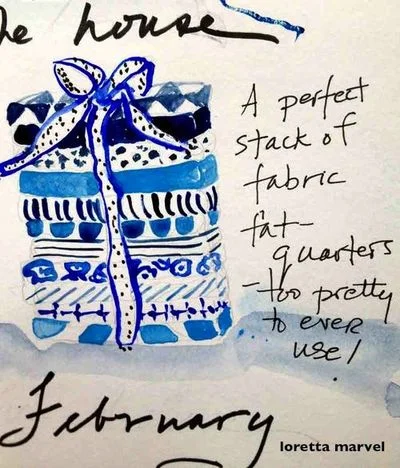 he house
A perfect
stack of
fabric
fat-
quarters
-too pretty
to ever
use!
February
loretta marvel